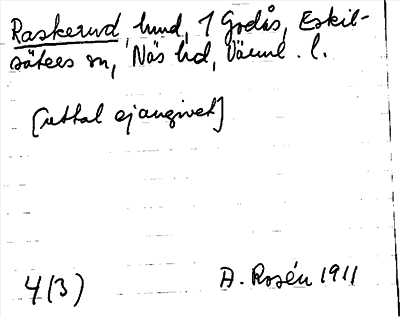 Raskerud, hmd, 1 Godås, Eskil-
säters sn, Näs hd, Värml. l.
[uttal ej angivet]
4(3) A. Rosén 1911